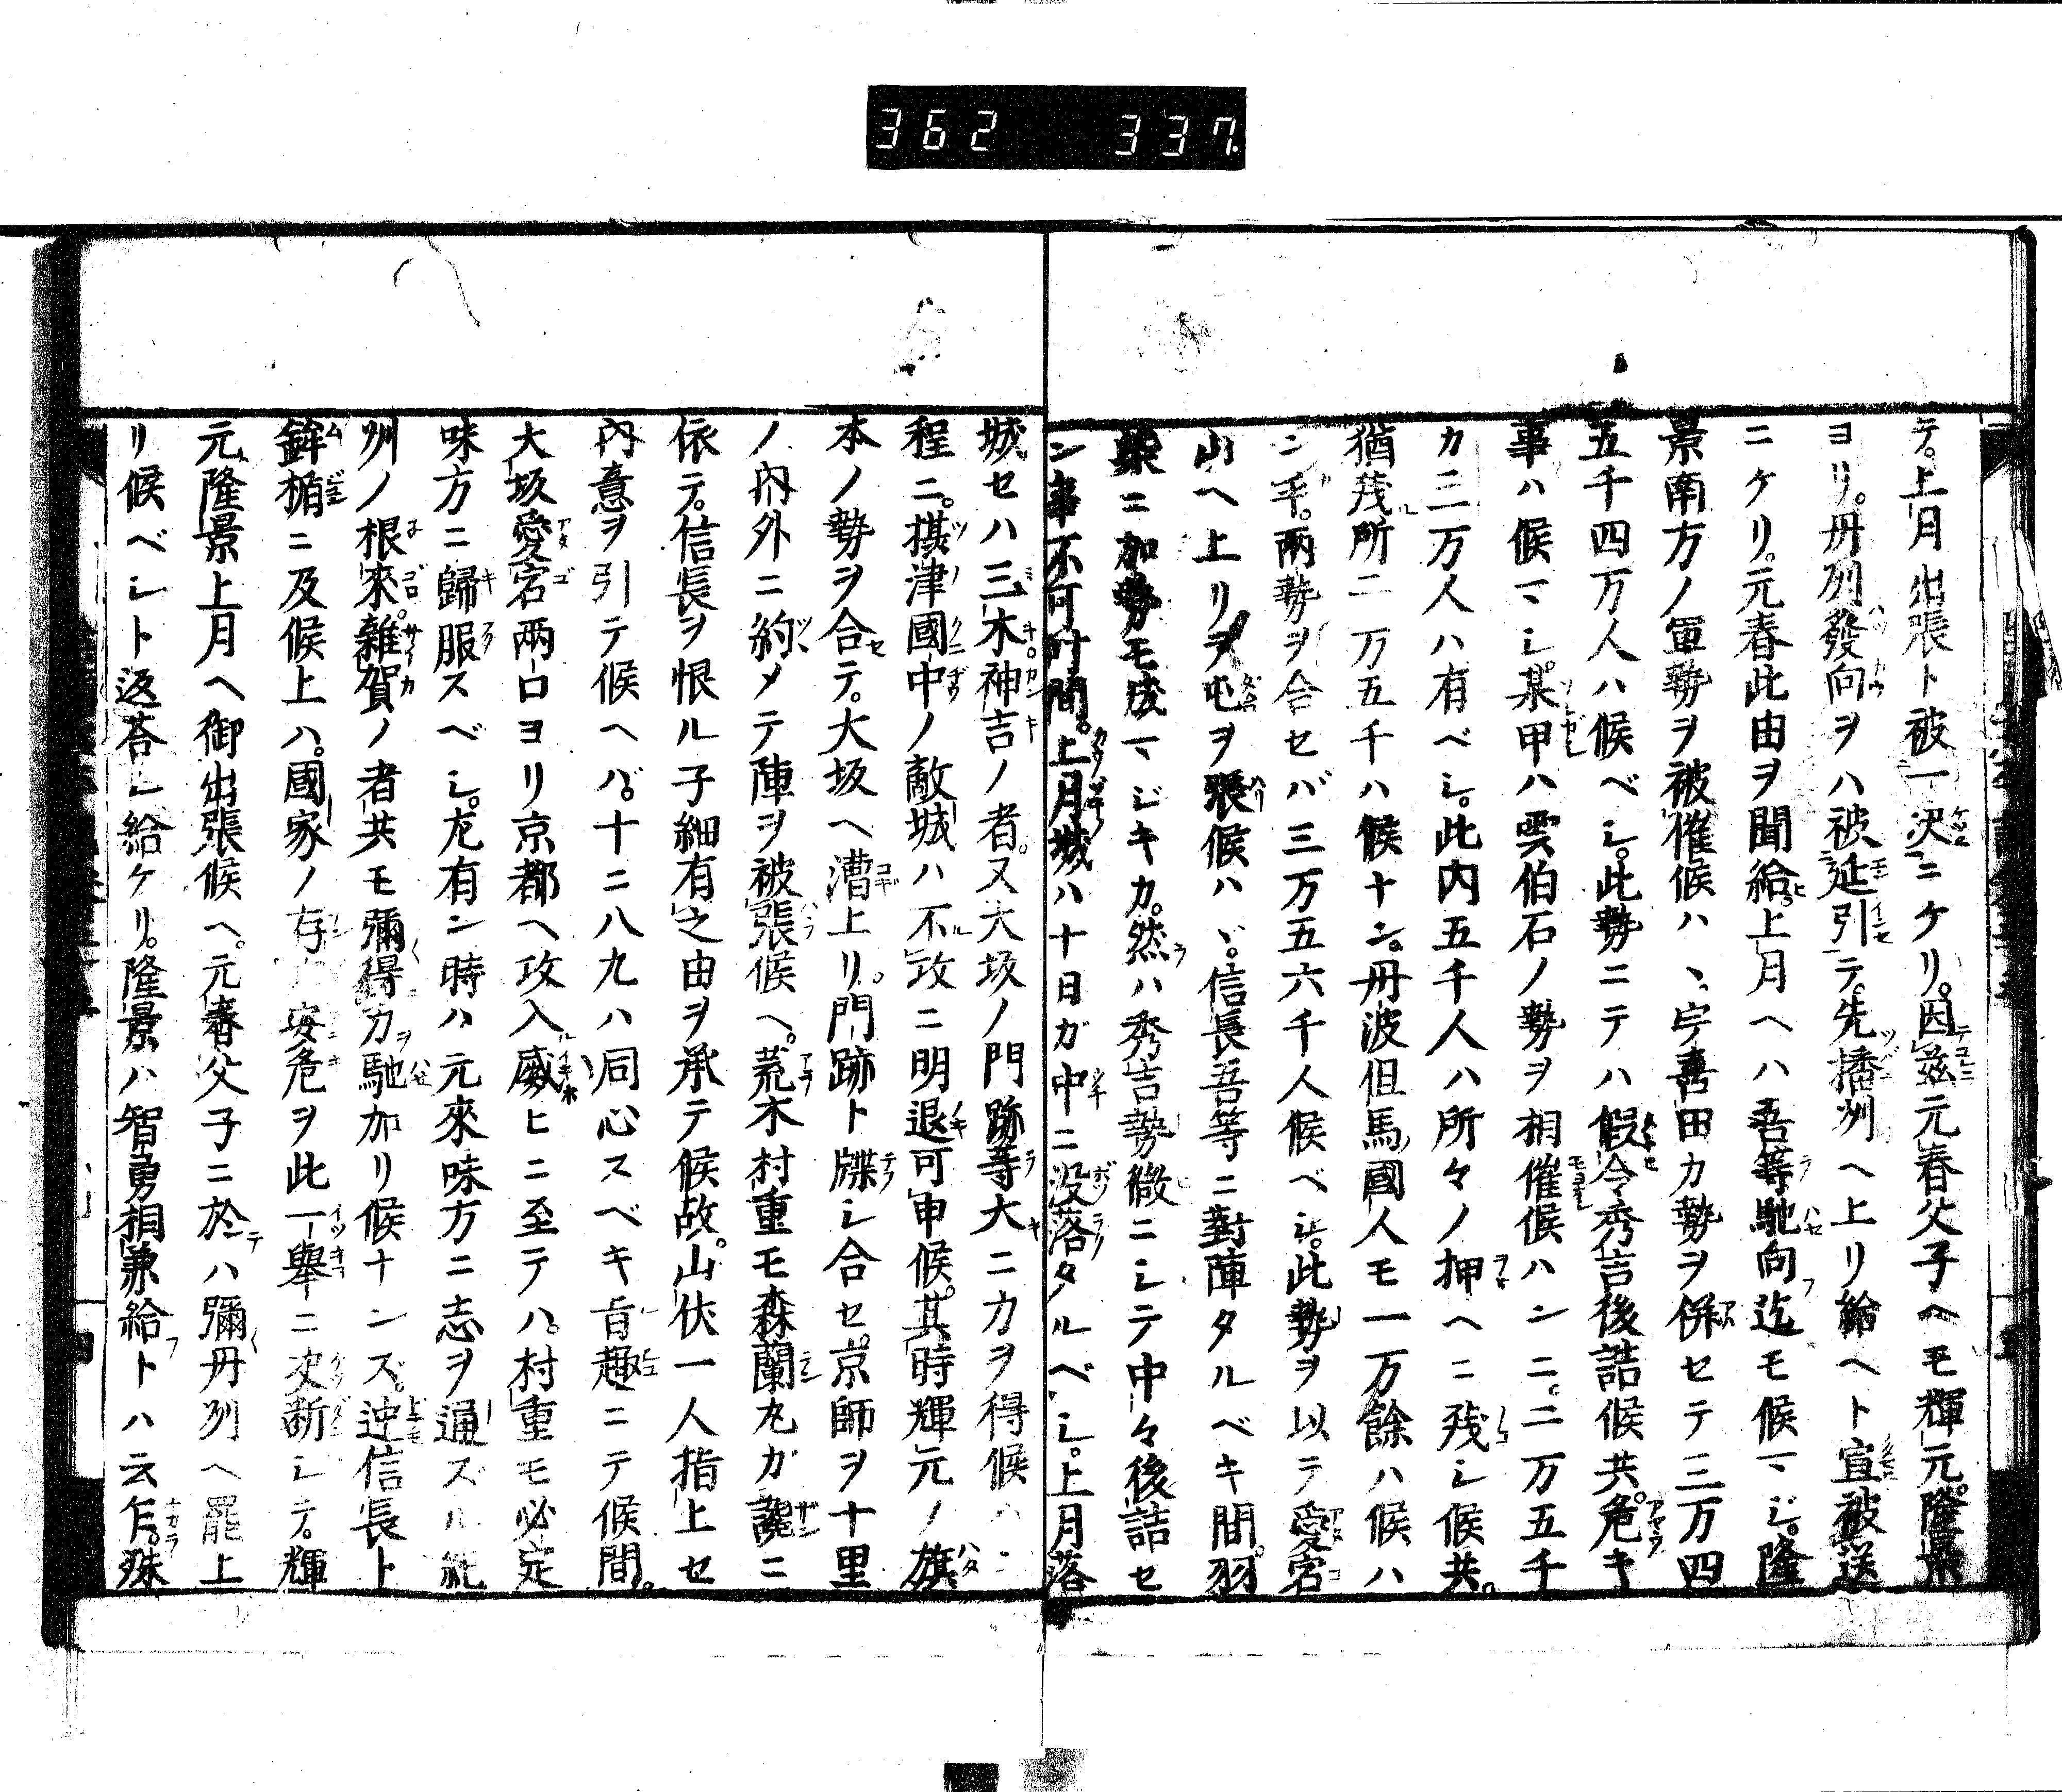 362 337
テ。上月出張ト被一決ニケリ。因茲元春父子ヘモ輝元。隆景
ヨリ。丹刕發向ヲハ被延引テ。先播州ヘ上リ給ヘト宣被送
ニケリ。元春此由ヲ聞給。上月ヘハ吾等馳向迄モ候マジ。隆
景南方ノ軍勢ヲ被催候ハヽ。宇喜田カ勢ヲ併セテ三万四
五千四万人ハ候ベシ。此勢ニテハ假令秀吉後詰候共。危キ
事ハ候マシ。某甲ハ雲伯石ノ勢ヲ相催候ハンニ。二万五千
カ三万人ハ有ベシ。此内五千人ハ所々ノ押ヘニ残シ候共。
猶残所二万五千ハ候ナン。丹波但馬國人モ一万餘ハ候ハ
ン乎。兩勢ヲ合セバ三万五六千人候ベシ。此勢ヲ以テ愛宕
山ヘ上リヲ屯ヲ張候ハヾ。信長吾等ニ對陣タルベキ間。羽
柴ニ加勢モ成マジキカ。然ハ秀吉勢微ニシテ中々後詰セ
ン事不可叶間。上月城ハ十日ガ中ニ没落タルベシ。上月落
城セハ三木神吉ノ者。又大坂ノ門跡等大ニ力ヲ得候ハン
程ニ。摂津國中ノ敵城ハ不攻ニ明退可申候。其時輝元ノ旗
本ノ勢ヲ合テ。大坂ヘ漕上リ。門跡ト牒シ合セ。京師ヲ十里
ノ内外ニ約メテ陣ヲ被張候ヘ。荒木村重モ森蘭丸ガ讒ニ
依テ。信長ヲ恨ル子細有之由ヲ承テ候故。山伏一人指上セ
内意ヲ引テ候ヘバ。十ニ八九ハ同心スベキ旨趣ニテ候間。
大坂愛宕兩口ヨリ京都ヘ攻入威ヒニ至テハ。村重モ必定
味方ニ歸服スベシ。尤有ン時ハ元來味方ニ志ヲ通ズル紀
州ノ根來。雜賀ノ者共モ彌得力馳加リ候ナンズ。迚信長ト
鉾楯ニ及候上ハ。國家ノ存安危ヲ此一擧ニ決斷シテ。輝
元。隆景上月ヘ御出張候ヘ。元春父子ニ於ハ彌丹刕ヘ罷上
リ候ベシト返荅シ給ケリ。隆景ハ智勇相兼給トハ云乍。殊